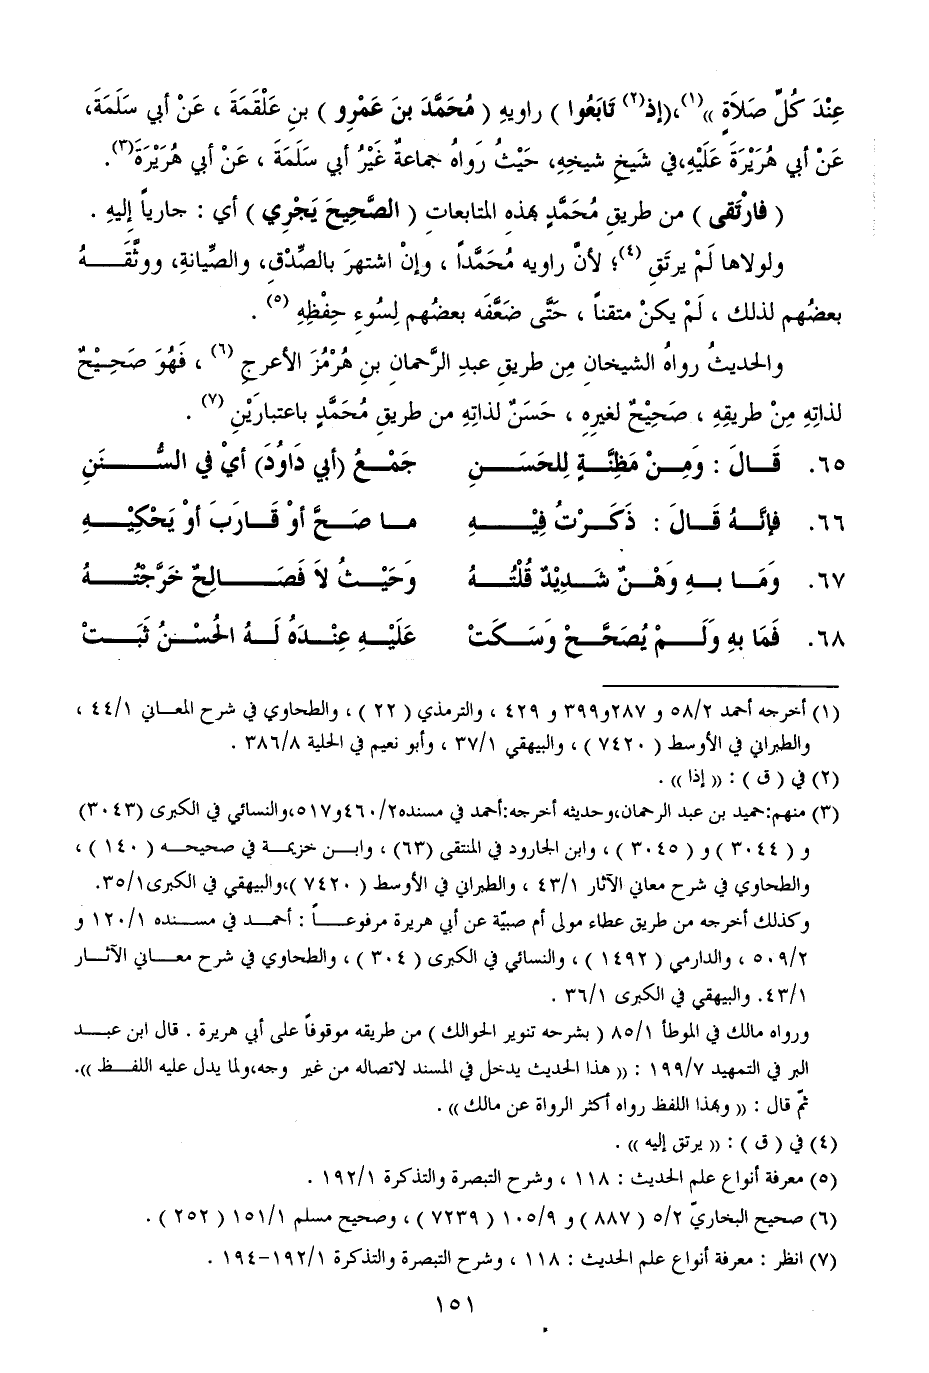 عِنْدَ كُلِّ صَلاَةٍ »(١)،(إذ(٢) تَابَعُوا ) راويهِ ( مُحَمَّدَ بنَ عَمْرِو ) بنِ عَلْقَمَةَ ، عَنْ أبي سَلَمَةَ،
عَنْ أبي هُرَيْرَةَ عَلَيْهِ،في شَيخِ شيخِهِ، حَيْثُ رَواهُ جماعةٌ غَيْرُ أبي سَلَمَةَ ، عَنْ أبي هُرَيْرَةَ(٣).
( فارْتَقى ) من طريقِ مُحَمَّدٍ بهذه المتابعات ( الصَّحِيحَ يَجْرِي ) أي : جارياً إليهِ .
ولولاها لَمْ يرتَقِ (٤)؛ لأنَّ راويه مُحَمَّداً ، وإنْ اشتهرَ بالصِّدْقِ، والصِّيانةِ، ووثَّقَهُ
بعضُهم لذلك ، لَمْ يكنْ متقناً ، حَتَّى ضَعَّفَه بعضُهم لِسُوءِ حِفْظِهِ (٥) .
والحديثُ رواهُ الشيخانِ مِن طريقِ عبدِ الرَّحمانِ بنِ هُرْمُزَ الأعرجِ (٦) ، فَهُوَ صَحِيْحٌ
لذاتِهِ مِنْ طريقِهِ ، صَحِيْحٌ لغيرِهِ ، حَسَنٌ لذاتِهِ من طريقِ مُحَمَّدٍ باعتبارَيْنِ (٧) .
٦٥. قَالَ : وَمِنْ مَظِنَّةٍ لِلحَسَنِ جَمْعُ (أبي دَاوُدَ) أيْ في السُّنَنِ
٦٦. فإنَّهُ قَالَ : ذَكَرْتُ فِيْهِ ما صَحَّ أوْ قَارَبَ أو يَحْكِيْهِ
٦٧. وَمَا بهِ وَهْنٌ شَدِيْدٌ قُلْتُهُ وَحَيْثُ لاَ فَصَالِحٌ خَرَّجْتُهُ
٦٨. فَمَا بهِ وَلَمْ يُصَحَّحْ وَسَكَتْ عَلَيْهِ عِنْدَهُ لَهُ الحُسْنُ ثَبَتْ
(١) أخرجه أحمد ٥٨/٢ و ٢٨٧و٣٩٩ و ٤٢٩ ، والترمذي ( ٢٢ ) ، والطحاوي في شرح المعاني ٤٤/١ ،
والطبراني في الأوسط ( ٧٤٢٠ ) ، والبيهقي ٣٧/١ ، وأبو نعيم في الحلية ٣٨٦/٨ .
(٢) في ( ق ) : « إذا » .
(٣) منهم:حميد بن عبد الرحمان،وحديثه أخرجه:أحمد في مسنده٤٦٠/٢و٥١٧،والنسائي في الكبرى (٣٠٤٣)
و ( ٣٠٤٤ ) و ( ٣٠٤٥ ) ، وابن الجارود في المنتقى (٦٣) ، وابن خزيمة في صحيحه ( ١٤٠ ) ،
والطحاوي في شرح معاني الآثار ٤٣/١ ، والطبراني في الأوسط ( ٧٤٢٠ )،والبيهقي في الكبرى٣٥/١.
وكذلك أخرجه من طريق عطاء مولى أم صبيّة عن أبي هريرة مرفوعاً : أحمد في مسنده ١٢٠/١ و
٥٠٩/٢ ، والدارمي ( ١٤٩٢ ) ، والنسائي في الكبرى ( ٣٠٤ ) ، والطحاوي في شرح معاني الآثار
٤٣/١. والبيهقي في الكبرى ٣٦/١ .
ورواه مالك في الموطأ ٨٥/١ ( بشرحه تنوير الحوالك ) من طريقه موقوفاً على أبي هريرة . قال ابن عبد
البر في التمهيد ١٩٩/٧ : « هذا الحديث يدخل في المسند لاتصاله من غير وجه،ولما يدل عليه اللفظ ».
ثمّ قال : « وبهذا اللفظ رواه أكثر الرواة عن مالك » .
(٤) في ( ق ) : « يرتق إليه » .
(٥) معرفة أنواع علم الحديث : ١١٨ ، وشرح التبصرة والتذكرة ١٩٢/١ .
(٦) صحيح البخاريّ ٥/٢ ( ٨٨٧ ) و ١٠٥/٩ ( ٧٢٣٩ ) ، وصحيح مسلم ١٥١/١ ( ٢٥٢ ) .
(٧) انظر : معرفة أنواع علم الحديث : ١١٨ ، وشرح التبصرة والتذكرة ١٩٢/١-١٩٤ .
١٥١